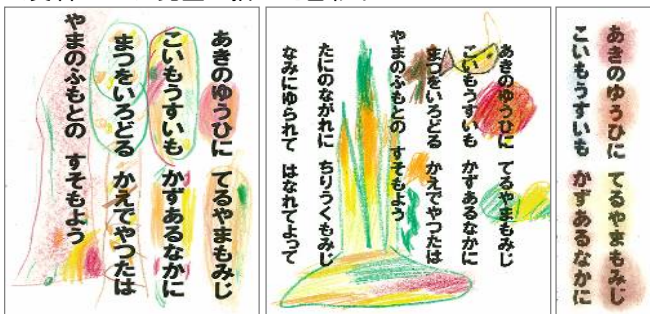 あきのゆうひに てるやまもみじ
こいもうすいも かずあるなかに
まつをいろどる かえでやつたは
やまのふもとの すそもよう
あきのゆうひに てるやまもみじ
こいもうすいも かずあるなかに
まつをいろどる かえでやつたは
やまのふもとの すそもよう
たにのながれに ちりうくもみじ
なみにゆられて はなれてよって
あきのゆうひに てるやまもみじ
こいもうすいも かずあるなかに